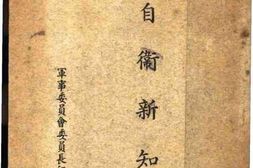 自衞新知
軍事委員會委員長